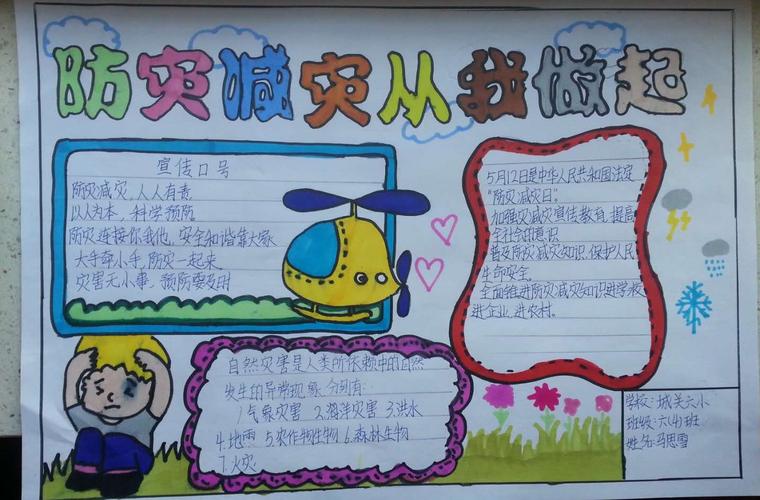 防灾减灾从我做起
宣传口号
防灾减灾,人人有责
以人为本,科学预防
防灾连接你我他,安全和谐靠大家
大手牵小手,防灾一起来
灾害无小事,预防要及时
5月12日是中华人民共和国法定
"防灾减灾日"。
加强灾减灾宣传教育,提高
全社会的意识
普及防灾减灾知识,保护人民
生命安全
全面推进防灾减灾知识进学校
进企业,进农村。
自然灾害是人类所依赖中的自然
发生的异常现象,分别有:
1.气象灾害 2.海洋灾害 3.洪水
4.地雨 5.农作物生物 6.森林生物
7.火灾
学校:城关六小
班级:六(4)班
姓名:马思雪